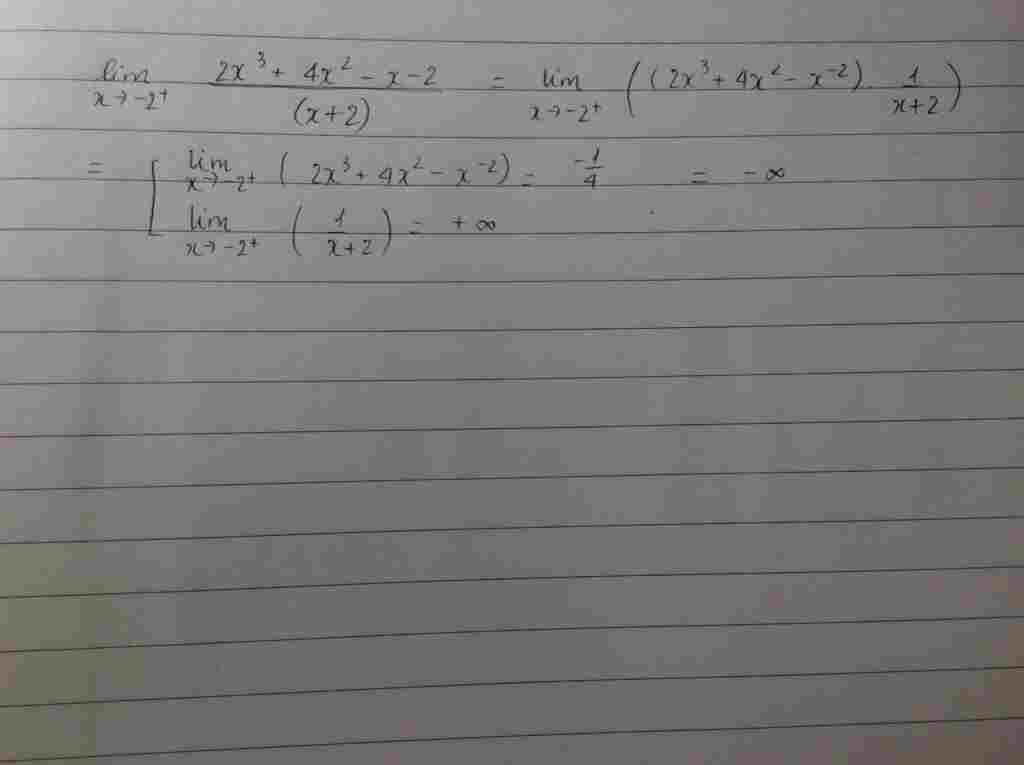 lim x→-2⁺ (2x³ + 4x² - x - 2)/(x+2) = lim x→-2⁺ ((2x³ + 4x² - x⁻²) · 1/(x+2))
= [ lim x→-2⁺ (2x³ + 4x² - x⁻²) = -1/4 = -∞
lim x→-2⁺ (1/(x+2)) = +∞